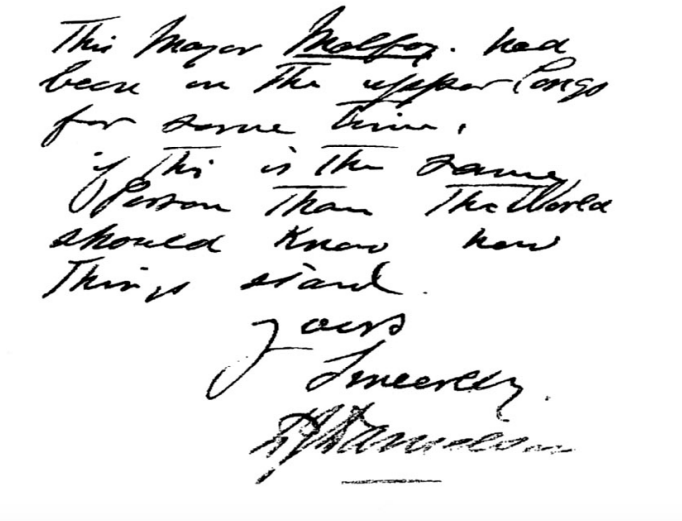 This Major Malfey. had
been on the upper Congo
for some time.
if this is the same
Person Than The World
should Know how
Things stand.
Yours
Sincerely.